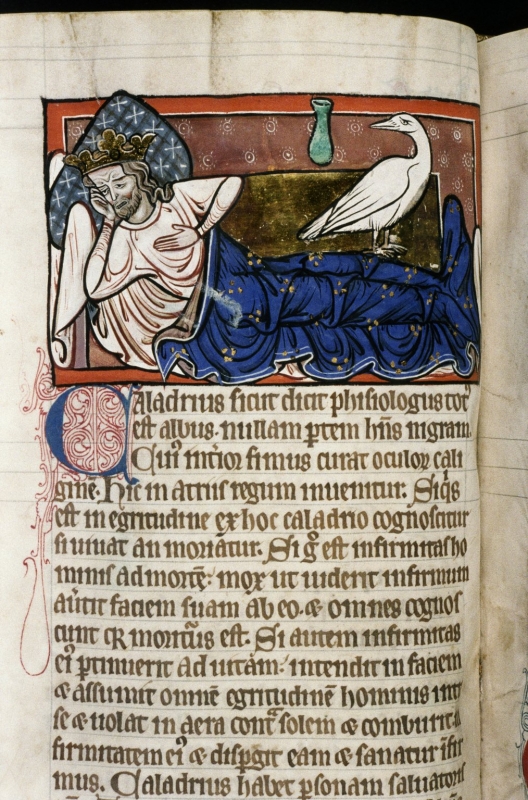 Caladrius sicut dicit phisiologus totꝰ
est albus. nullam ꝑtem hñs nigram.
Cuiꝰ int̾ior fimus curat oculoꝝ cali
ginē. Hic in atriis regum inuenitur. Siqͥs
est in egritudine ex hoc caladrio cognoscitur
si uiuat an moriatur. Si gͦ est infirmitas ho
minis ad mortē: mox ut uiderit infirmum
au̾tit faciem suam ab eo. & omnes cognos
cunt qꝛ moritur̾ est. Si autem infirmitas
eiꝰ ꝑtinuerit ad uitam: intendit in faciem
& assumit omnē egritudinē hominis int̾
se & uolat in aera cont̾ solem & comburit
firmitatem eiꝰ & disꝑgit eam & sanatur īfir
mus. Caladrius habet ꝑsonam saluatoris